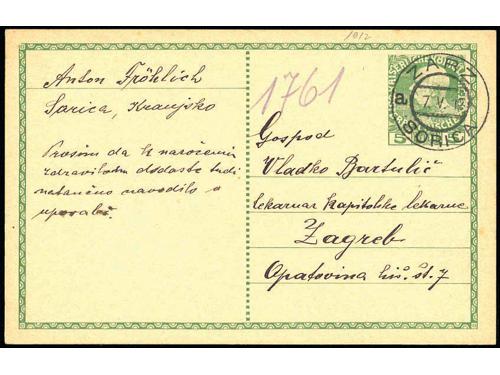 1912
Anton Fröhlich
Sorica, Kranjsko
Prosim da k naročenim
zdravilom dodaste tudi
natančno navodilo o
uporabi.
1761
ZARZ
a.
7.V.
SORICA
5
Gospod
Vladko Bartulić
lekarnar kapitolske lekarne
Zagreb
Opatovina hiš. št. 7